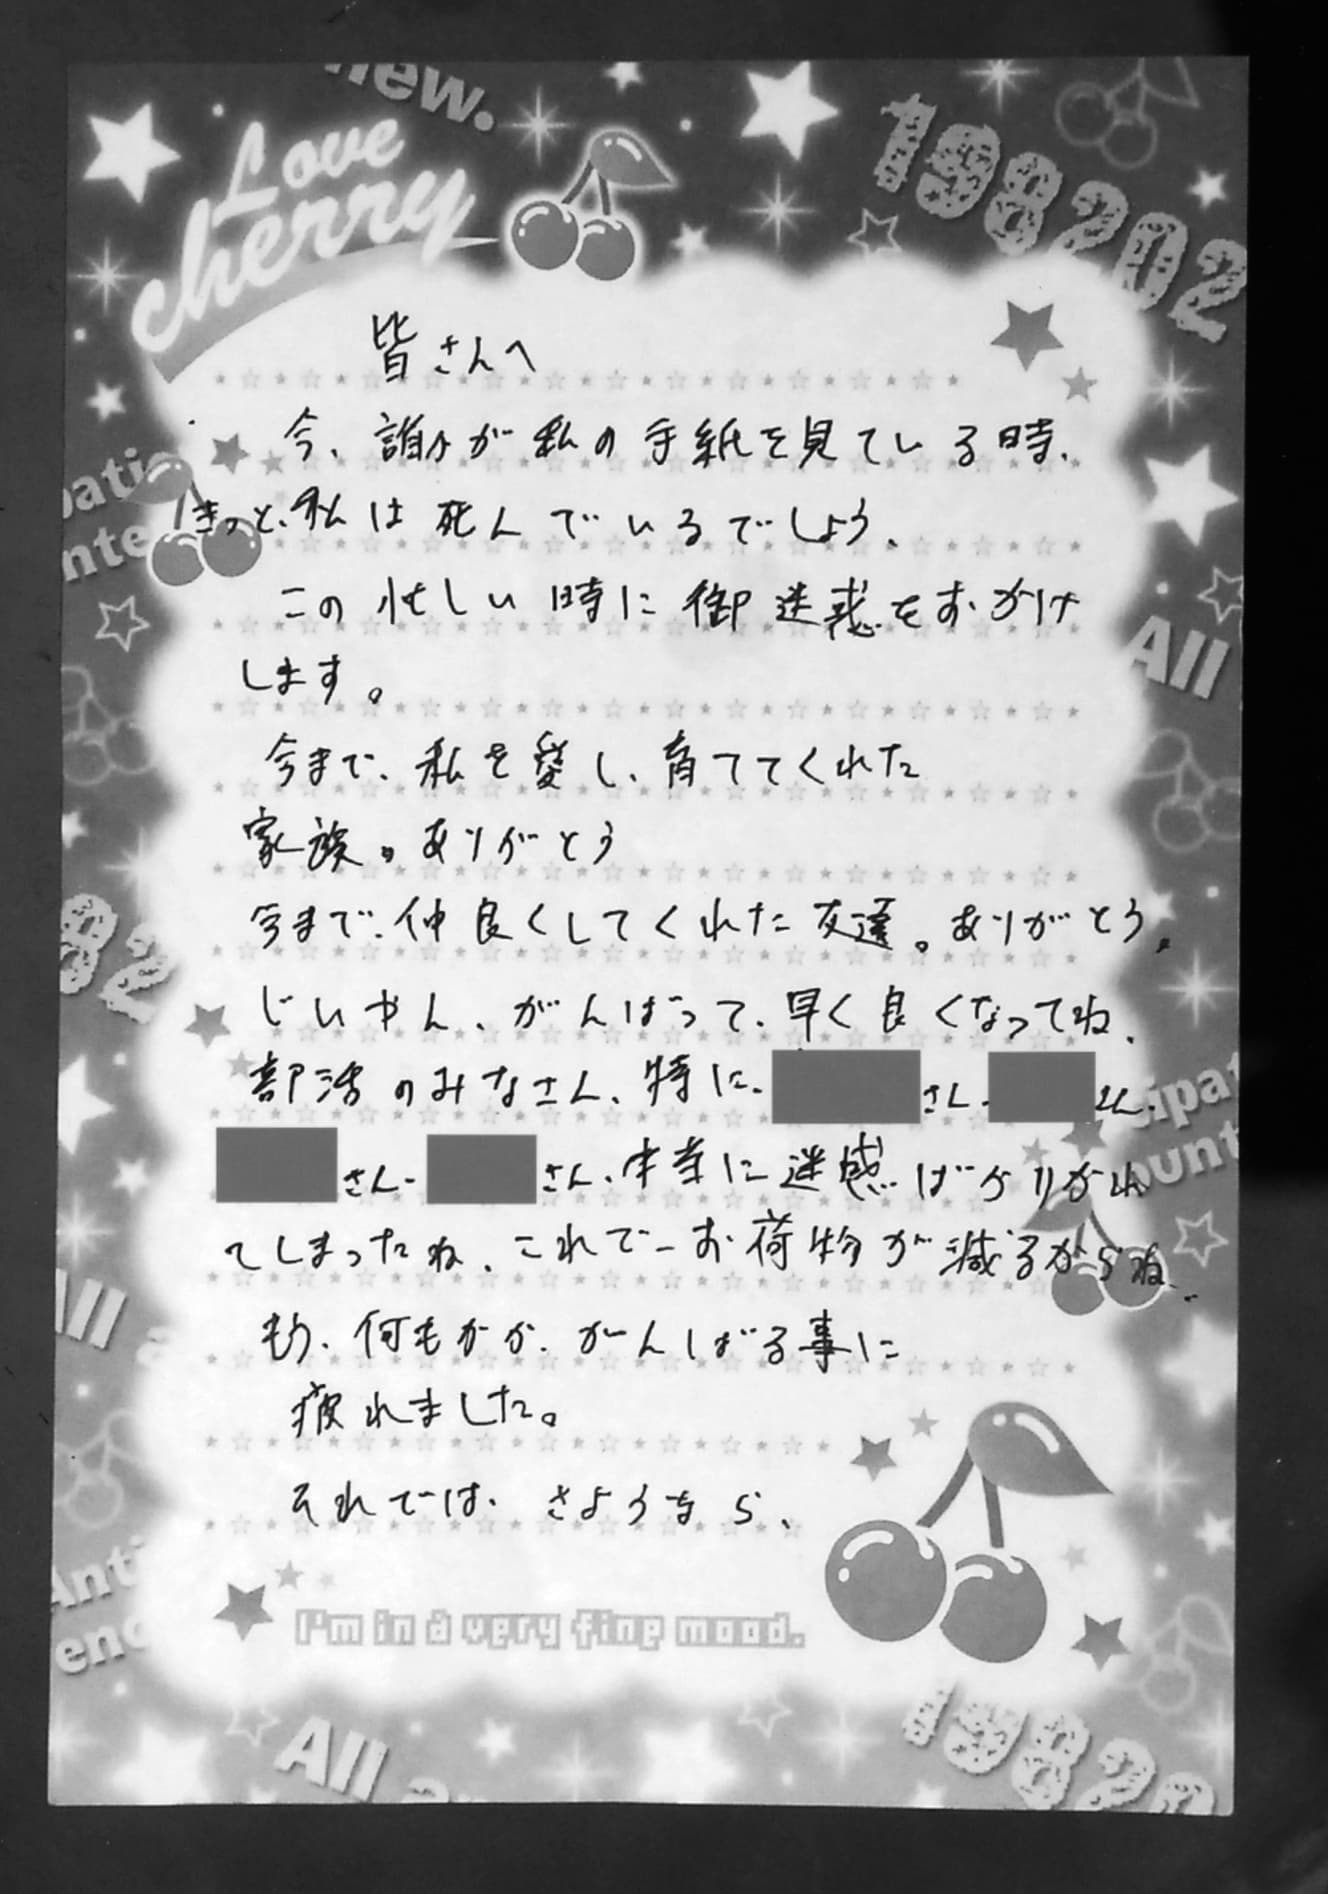 new.
Love
cherry
198202
皆さんへ
今、誰かが私の手紙を見ている時、
きっと、私は死んでいるでしょう。
この忙しい時に御迷惑をおかけ
します。
今まで、私を愛し、育ててくれた
家族。ありがとう
今まで、仲良くしてくれた友達。ありがとう。
じいやん、がんばって、早く良くなってね、
部活のみなさん、特に、さん、さん、
さん、さん、本当に迷惑ばかりかれ
てしまったね、これで、お荷物が減るからね、
もう、何もかが、がんばる事に
疲れました。
それでは、さようなら、
I'm in a very fine mood.
pati
nte
All
82
cipat
ount
All
Anti
enc
All
19820